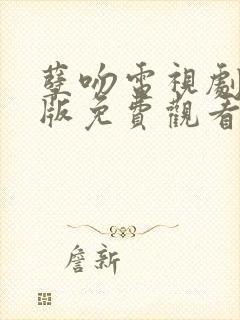 孽吻電視劇
版免費觀看
詹新